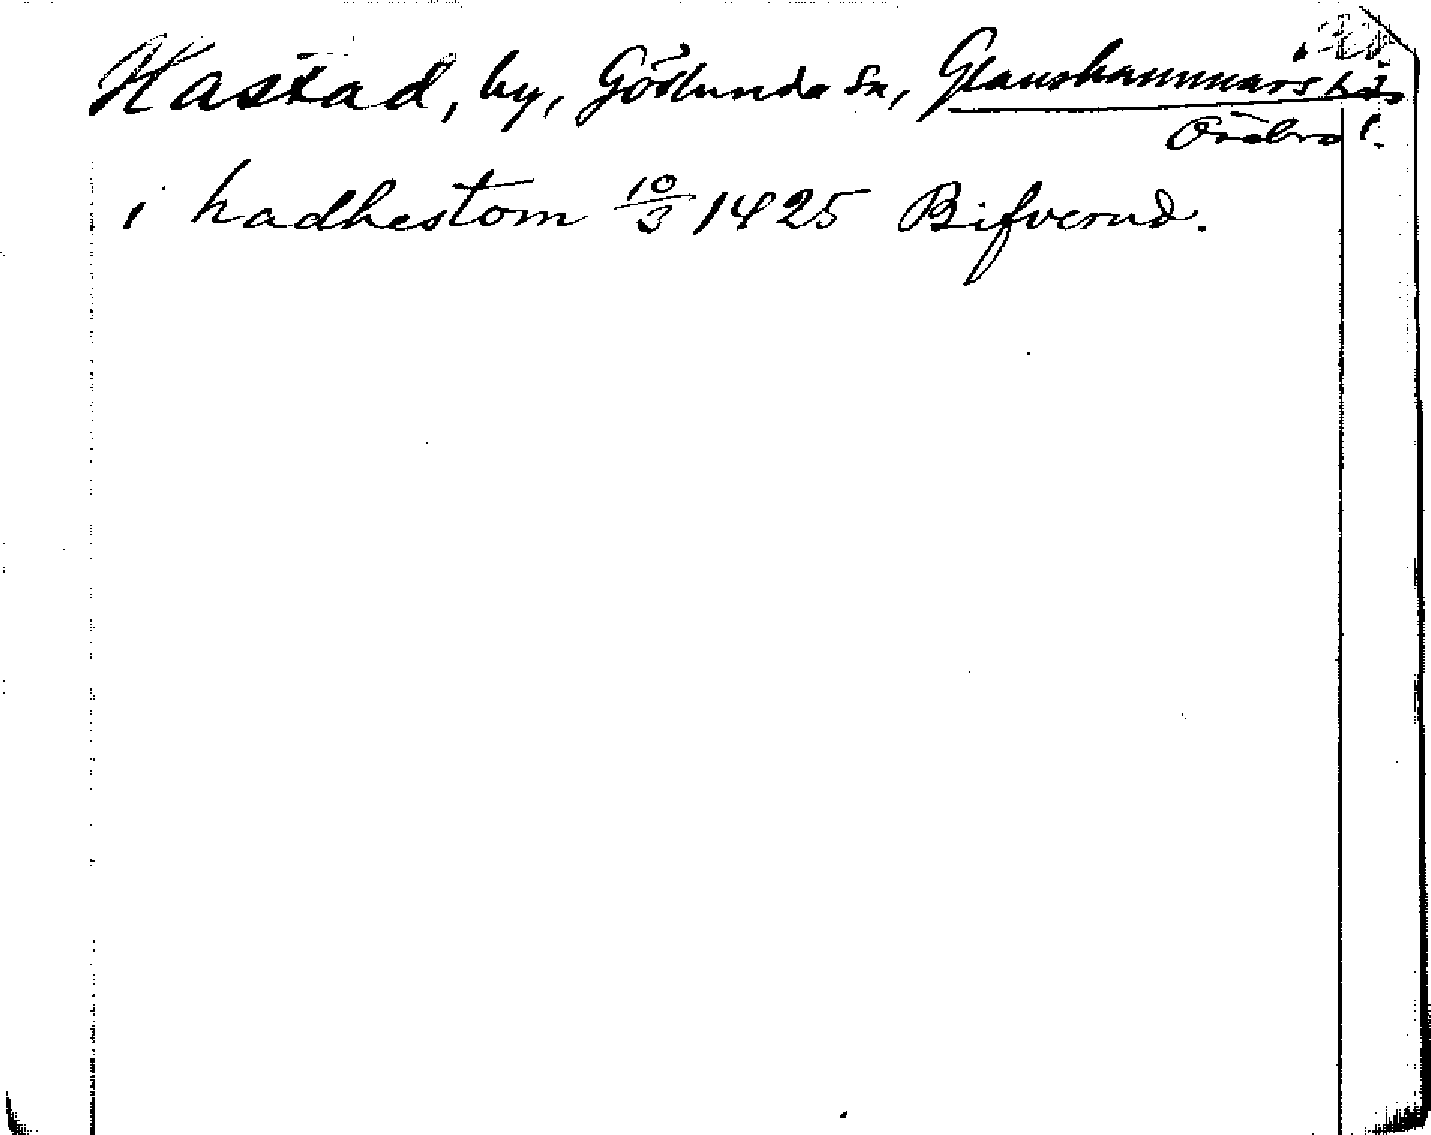 Hastad, by, Götlunda sn, Glanshammars hd,
Örebro l.
i hadhestom 10/3 1425 Bifverud.